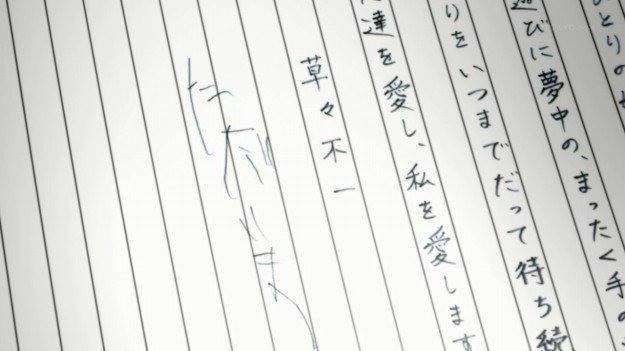 ひとりの
遊びに夢中の、まったく手の
りをいつまでだって待ち続
達を愛し、私を愛します
草々不一